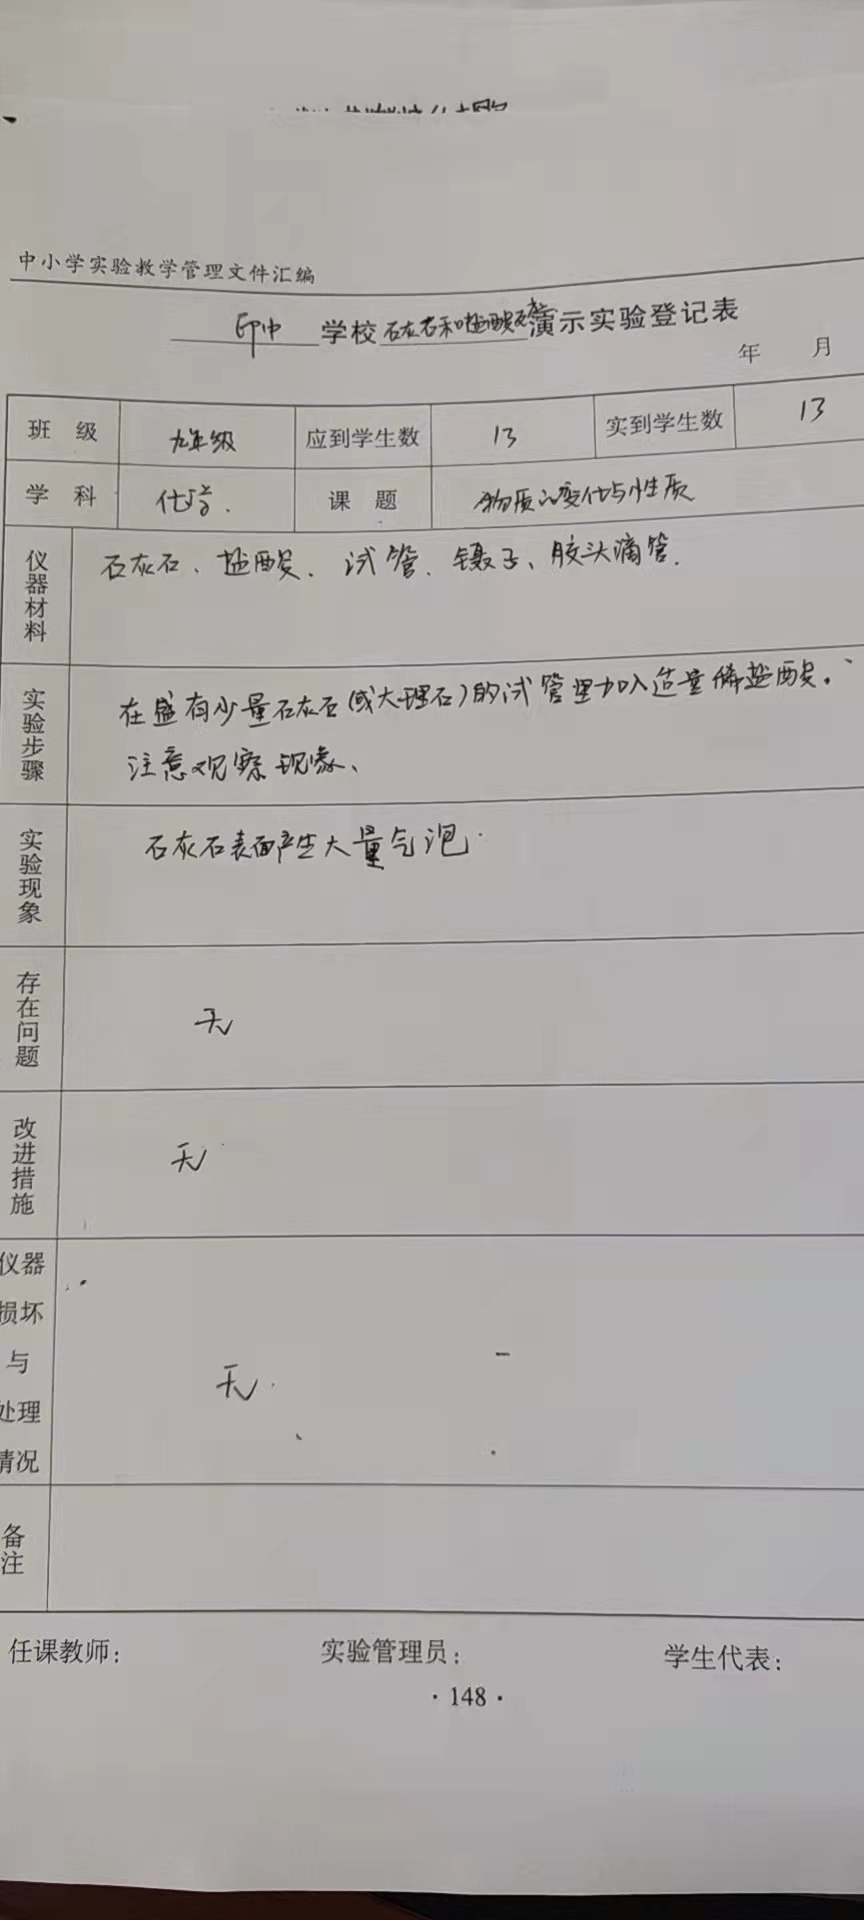 中小学实验教学管理文件汇编
印中 学校 石灰石和盐酸反应 演示实验登记表
年 月
班 级 九年级 应到学生数 13 实到学生数 13
学 科 化学. 课 题 物质的变化与性质
仪器材料 石灰石、盐酸、试管、镊子、胶头滴管.
实验步骤 在盛有少量石灰石(或大理石)的试管里加入适量稀盐酸。
注意观察现象、
实验现象 石灰石表面产生大量气泡.
存在问题 无
改进措施 无
仪器损坏与处理情况 无.
备注
任课教师: 实验管理员: 学生代表:
·148·